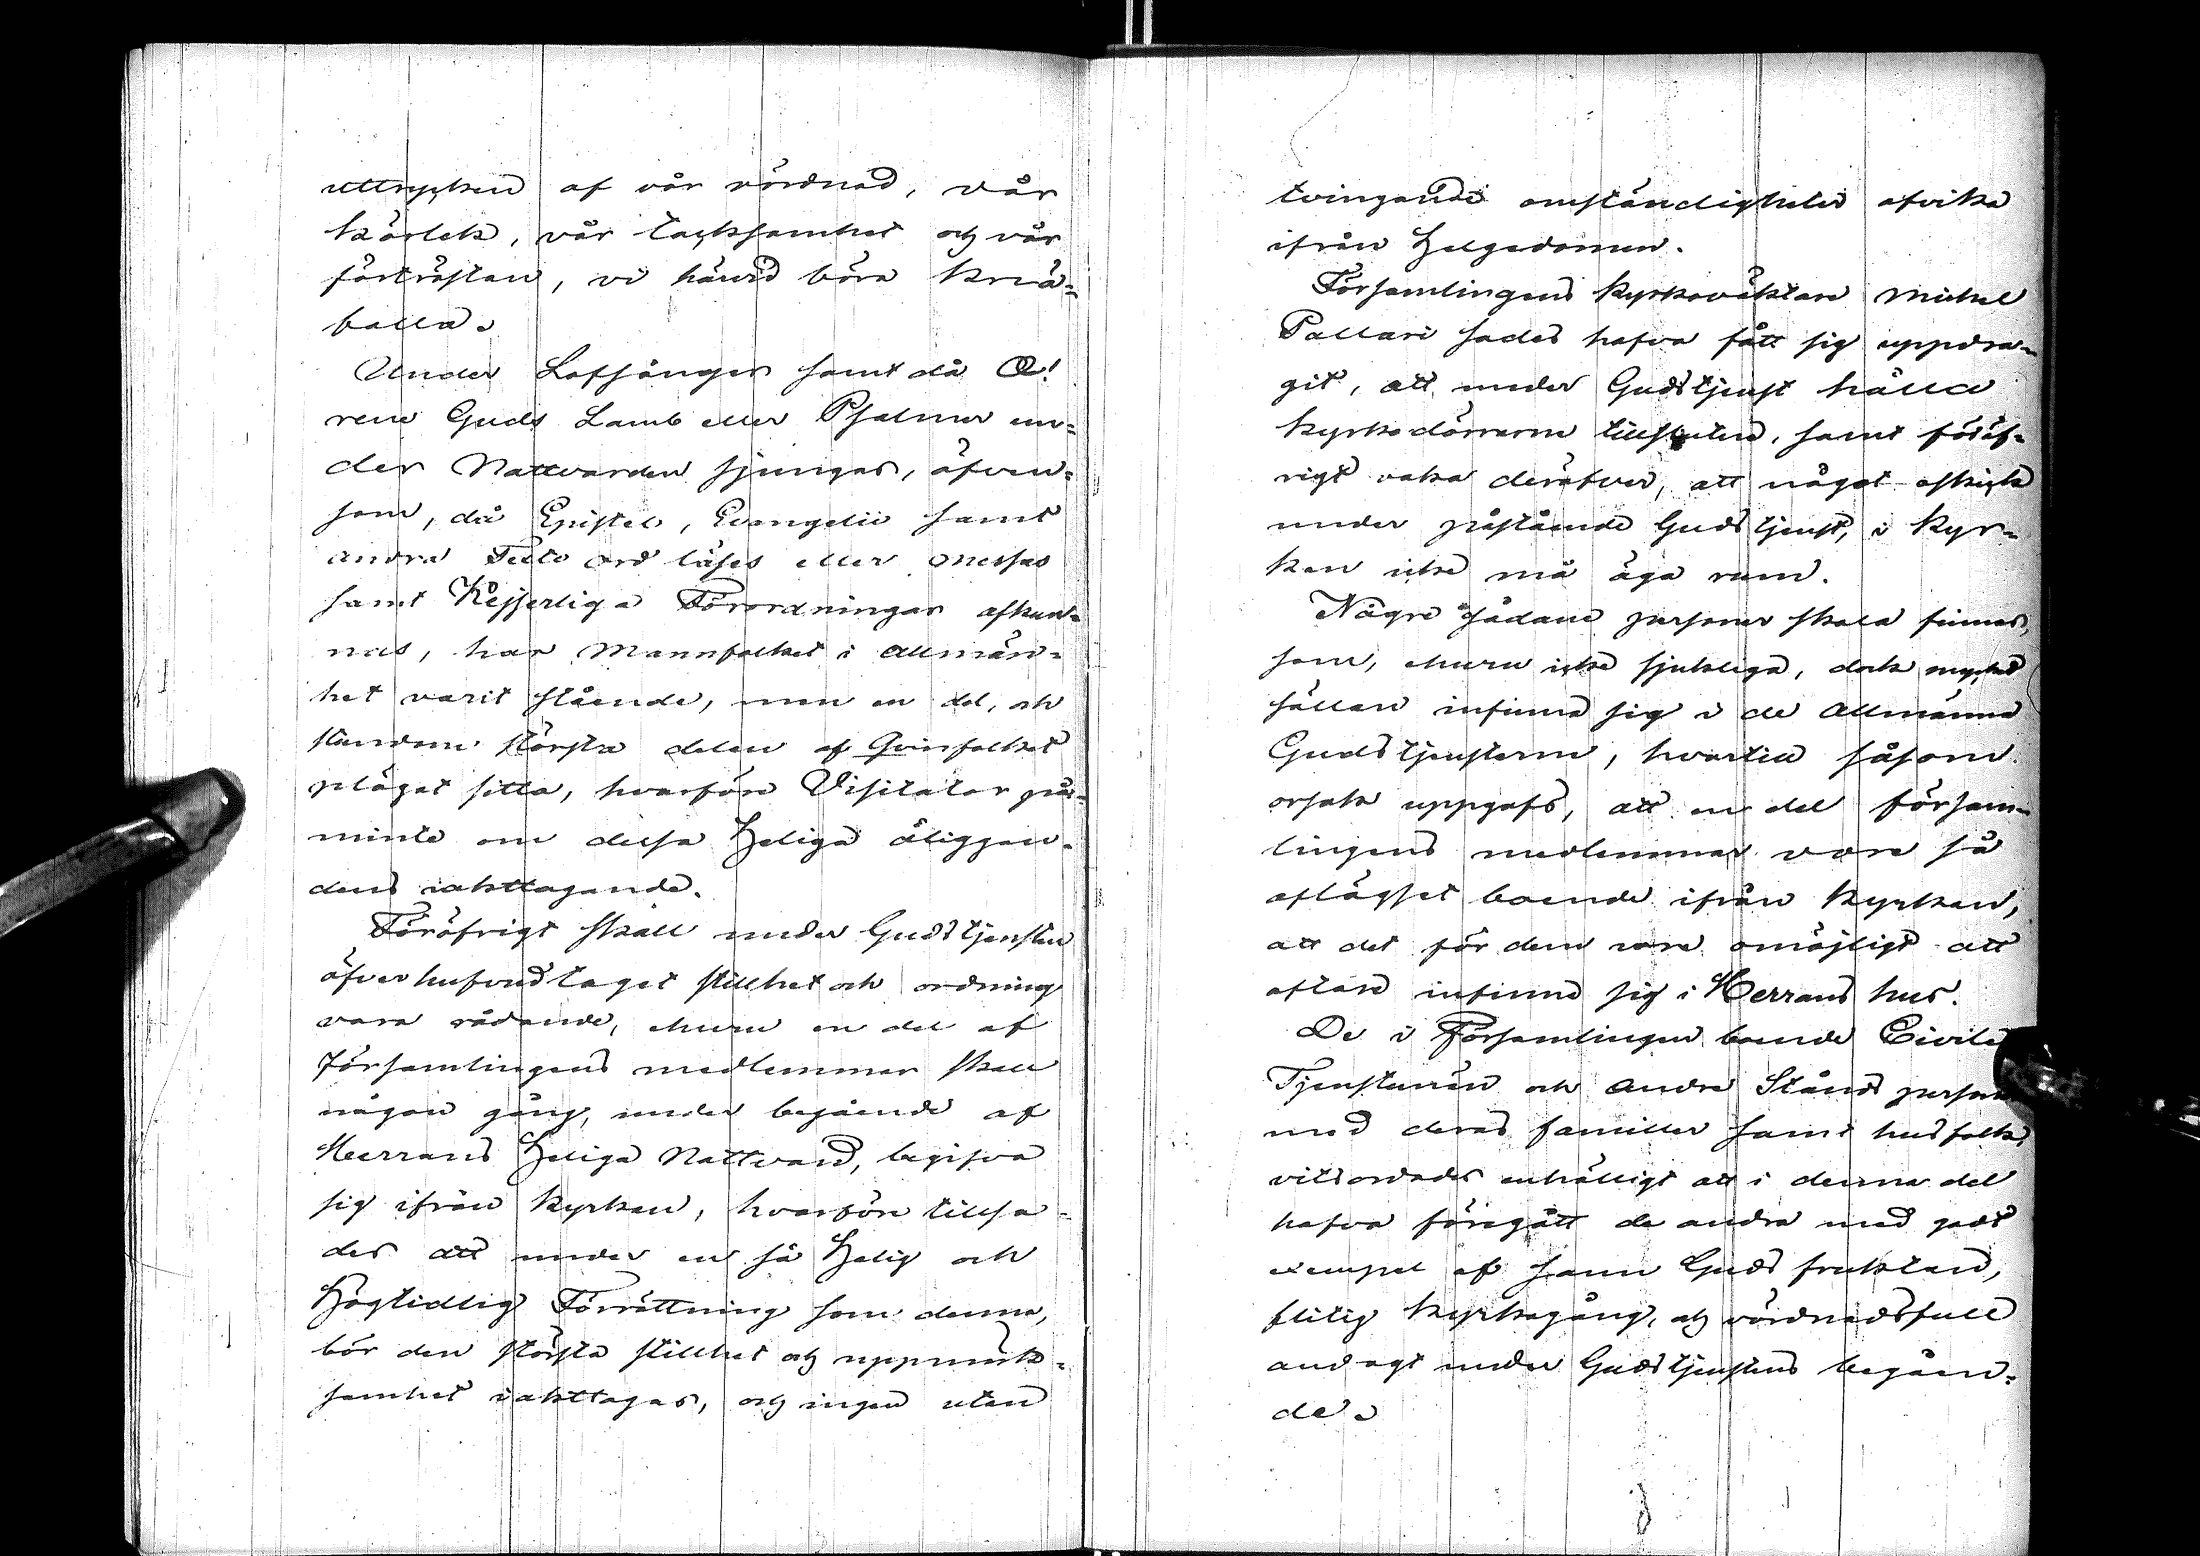 uttrycken af vår vördnad, vår
kärlek, vår tacksamhet och vår
förtröstan, vi härvid böra knä=
falla.
Under Lofsånger samt då O!
rene Guds Lamb eller Psalmer un=
der Nattvarden sjunges, äfven=
som, då Epistel, Evangelii samt
andra Texte ord läses eller messas
samt Kejserliga Förordningar afkun=
nas, har Mannfolket i allmän=
het varit stående, men en del, och
stundom största delen af Qvinfolket
plägat sitta, hvarföre Visitator på=
minte om dessa Heliga åliggan=
dens iakttagande.
Föröfrigt skall under Gudstjensten
öfver hufvud taget stillhet och ordning
vara rådande, ehuru en del af
Församlingens medlemmar skall
någon gång, under begående af
Herrans Heliga Nattvard, begifva
sig ifrån Kyrkan, hvarföre tillsa=
des att under en så Helig och
Högtidlig Förrättning som denna,
bör den största stillhet och uppmärk=
samhet iakttagas, och ingen utan
tvingande omständigheter afvika
ifrån Helgedomen.
Församlingens Kyrkoväktare Michel
Pallari sades hafva fått sig uppdra=
git, att under Gudstjenst hålla
kyrkodörrarne tillslutna, samt föröf=
rigt vaka deröfver, att något oskick
under påstående Gudstjenst, i Kyr=
kan icke må äga rum.
Några sådane personer skola finnas,
som, ehuru icke sjukliga, dock mycket
sällan infinna sig i de allmänna
Gudstjensterne, hvartill såsom
orsak uppgafs, att en del försam=
lingens medlemmar vore så
aflägset boende ifrån Kyrkan,
att det för dem vore omöjligt att
oftare infinna sig i Herrans hus.
De i Församlingen boende Civile
Tjenstemän och andra Stånds
med deras familler samt husfolk,
vitsordades enhälligt att i denna del
hafva föregått de andra med godt
exempel af sann Guds fruktan,
flitig Kyrkogång, och vördnadsfull
andagt under Gudstjenstens begåen=
de.